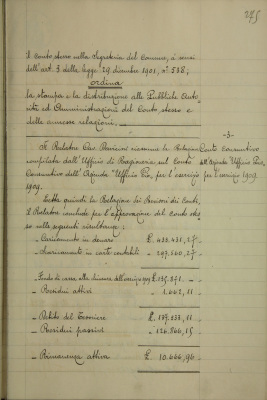 245
il conto stesso nella Segreteria del Comune, a sensi
dell'art. 3 della legge 29 dicembre 1901, n° 538;
ordina
la stampa e la distribuzione alle Pubbliche Auto
rità ed Amministrazioni del Conto stesso e
delle annesse relazioni.
-3-
Conto consuntivo
dell'Azienda Ufficio Pio,
per l'esercizio 1909.
Il Relatore Cav. riassume la Relazione
compilata dall'Ufficio di Ragioneria sul Conto
Consuntivo dell'Azienda "Ufficio Pio" per l'esercizio
1909.
Letta quindi la Relazione dei Revisori dei Conti,
il Relatore conclude per l'approvazione del conto stes
so nelle seguenti risultanze:
- Caricamento in denaro £. 433.431,27
- Scaricamento in carte contabili " 297.560,27
- Fondo di cassa alla chiusura dell'esercizio 1909 £. 135.871. -
- Residui attivi " 1.662,11
- Debito del Tesoriere £. 137.533,11
- Residui passivi " 126.866,15
- Rimanenza attiva £. 10.666,96